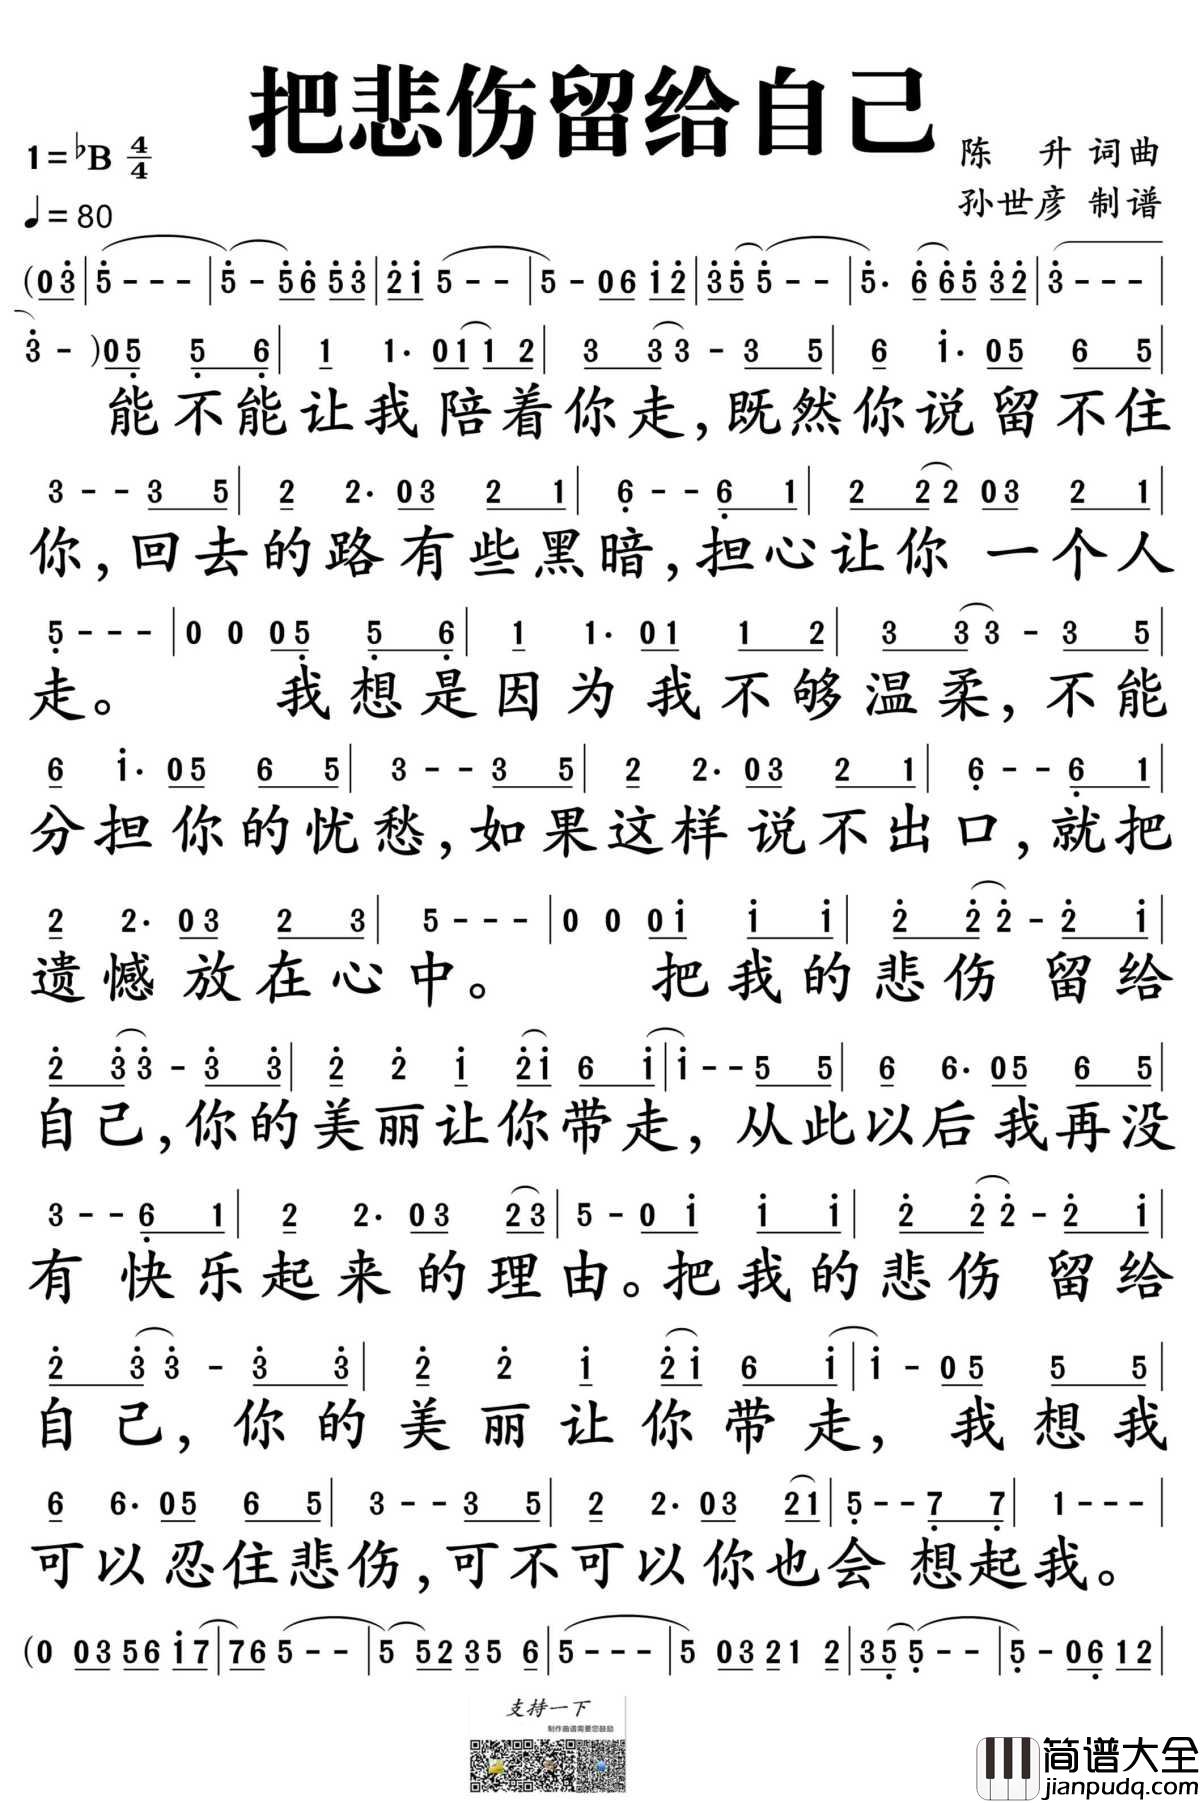 把悲伤留给自己
1=♭B 4/4
陈 升 词曲
♩=80
孙世彦 制谱
(03̇|5̇---|5̇-5̇6̇5̇3̇|2̇1̇5--|5-061̇2̇|3̇5̇5̇--|5̇·6̇6̇5̇3̇2̇|3̇---|
3̇-)05̣ 5̣6̣|1 1·0112|3 33-35|6 1̇·05 65|
能不能让我陪着你走,既然你说留不住
3--35|2 2·03 21|6̣--6̣1|2 22 03 21|
你,回去的路有些黑暗,担心让你 一个人
5̣---|0 0 05̣ 5̣6̣|1 1·01 12|3 33-35|
走。 我想是因为我不够温柔,不能
6 1̇·05 65|3--35|2 2·03 21|6̣--6̣1|
分担你的忧愁,如果这样说不出口,就把
2 2·03 23|5---|0 0 01̇ 1̇1̇|2̇ 2̇2̇-2̇1̇|
遗憾放在心中。 把我的悲伤 留给
2̇ 3̇3̇-3̇3̇|2̇ 2̇ 1̇ 2̇1̇ 61̇|1̇--55|6 6·05 65|
自己,你的美丽让你带走,从此以后我再没
3--6̣1|2 2·03 23|5-01̇ 1̇1̇|2̇ 2̇2̇-2̇1̇|
有 快乐起来的理由。把我的悲伤 留给
2̇ 3̇3̇-3̇3̇|2̇ 2̇ 1̇ 2̇1̇ 61̇|1̇-05 55|
自己,你的美丽让你带走,我想我
6 6·05 65|3--35|2 2·03 21|5̣--7̣7̣|1---|
可以忍住悲伤,可不可以你也会 想起我。
(0 03561̇7|765--|5 5235 6|5--|5 0321 2|35̣5̣--|5̣-06̣12|
支持一下
制作曲谱需要您鼓励
简谱大全
jianpudq.com